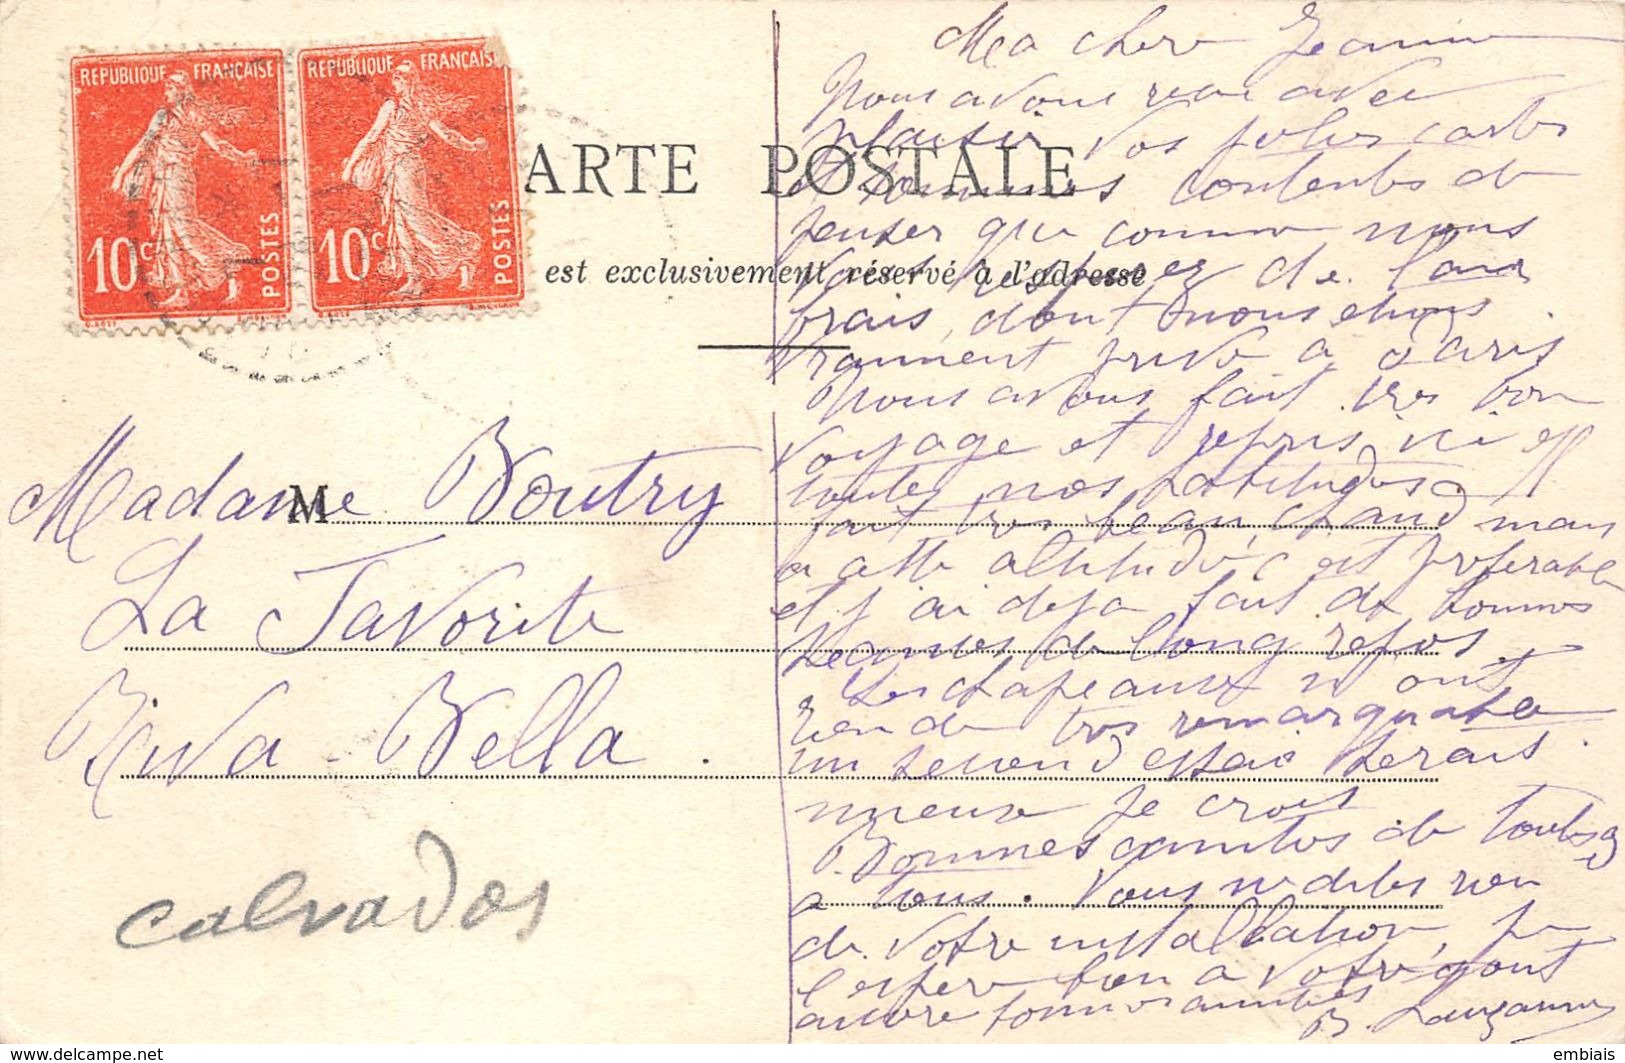 REPUBLIQUE FRANÇAISE
10c
POSTES
REPUBLIQUE FRANÇAISE
10c
POSTES
ARTE POSTALE
est exclusivement réservé à l'adresse
M
Madame Boutry
La Favorite
Riva Bella.
calvados
Ma chere Jeanne
Nous avons recu avec
plaisir vos jolies cartes
et sommes contentes de
penser que comme nous
vous respirez de l'air
frais, dont nous etions
vraiment privé à Paris
Nous avons fait tres bon
voyage et repris ici
toutes nos habitudes. Il
fait tres beau, chaud mais
a cette altitude, c'est preferable
et j'ai deja fait de bonnes
seances de long repos.
Les chapeaux n'ont
rien de tres remarquable
un second essai serait
mieux je crois
Bonnes amities de toutes
a tous. Vous ne dites rien
de votre installation, je
l'espere bien a votre gout
encore bonnes amities
B. Lauzanne
embiais